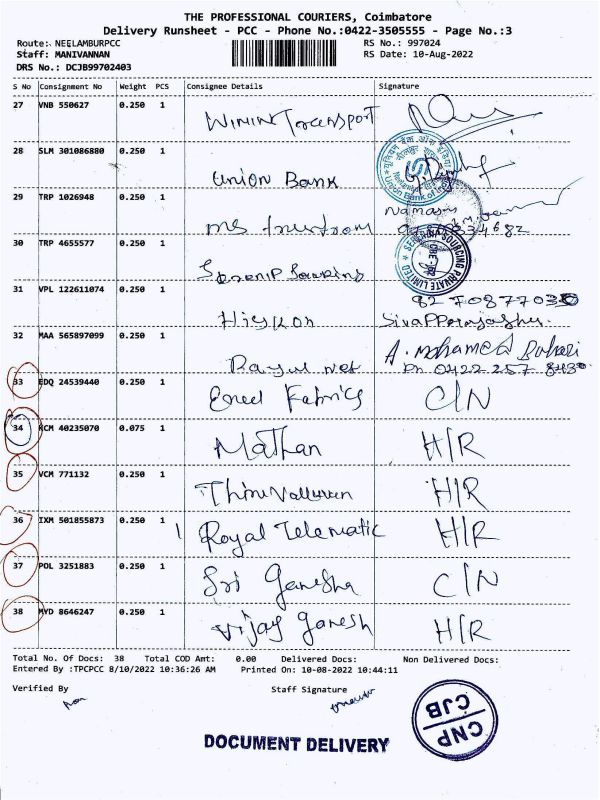 THE PROFESSIONAL COURIERS, Coimbatore
Delivery Runsheet - PCC - Phone No.:0422-3505555 - Page No.:3
Route: NEELAMBURPCC RS No.: 997024
Staff: MANIVANNAN RS Date: 10-Aug-2022
DRS No.: DCJB99702403
S No Consignment No Weight PCS Consignee Details Signature
27 VNB 550627 0.250 1 Transport
28 SLM 301086880 0.250 1 Union Bank
29 TRP 1026948 0.250 1
30 TRP 4655577 0.250 1
31 VPL 122611074 0.250 1
32 MAA 565897099 0.250 1 A. Mohamed
Rayal net Ph 0422 257
33 EDQ 24539440 0.250 1 Fabrics C/N
34 KCM 40235070 0.075 1 Mathan H/R
35 VCM 771132 0.250 1 Thiruvalluvan H/R
36 IXM 501855873 0.250 1 Royal Telematic H/R
37 POL 3251883 0.250 1 Sri Ganesha C/N
38 MYD 8646247 0.250 1 Vijay Ganesh H/R
Total No. Of Docs: 38 Total COD Amt: 0.00 Delivered Docs: Non Delivered Docs:
Entered By :TPCPCC 8/10/2022 10:36:26 AM Printed On: 10-08-2022 10:44:11
Verified By Staff Signature
DOCUMENT DELIVERY
CNP
CJB